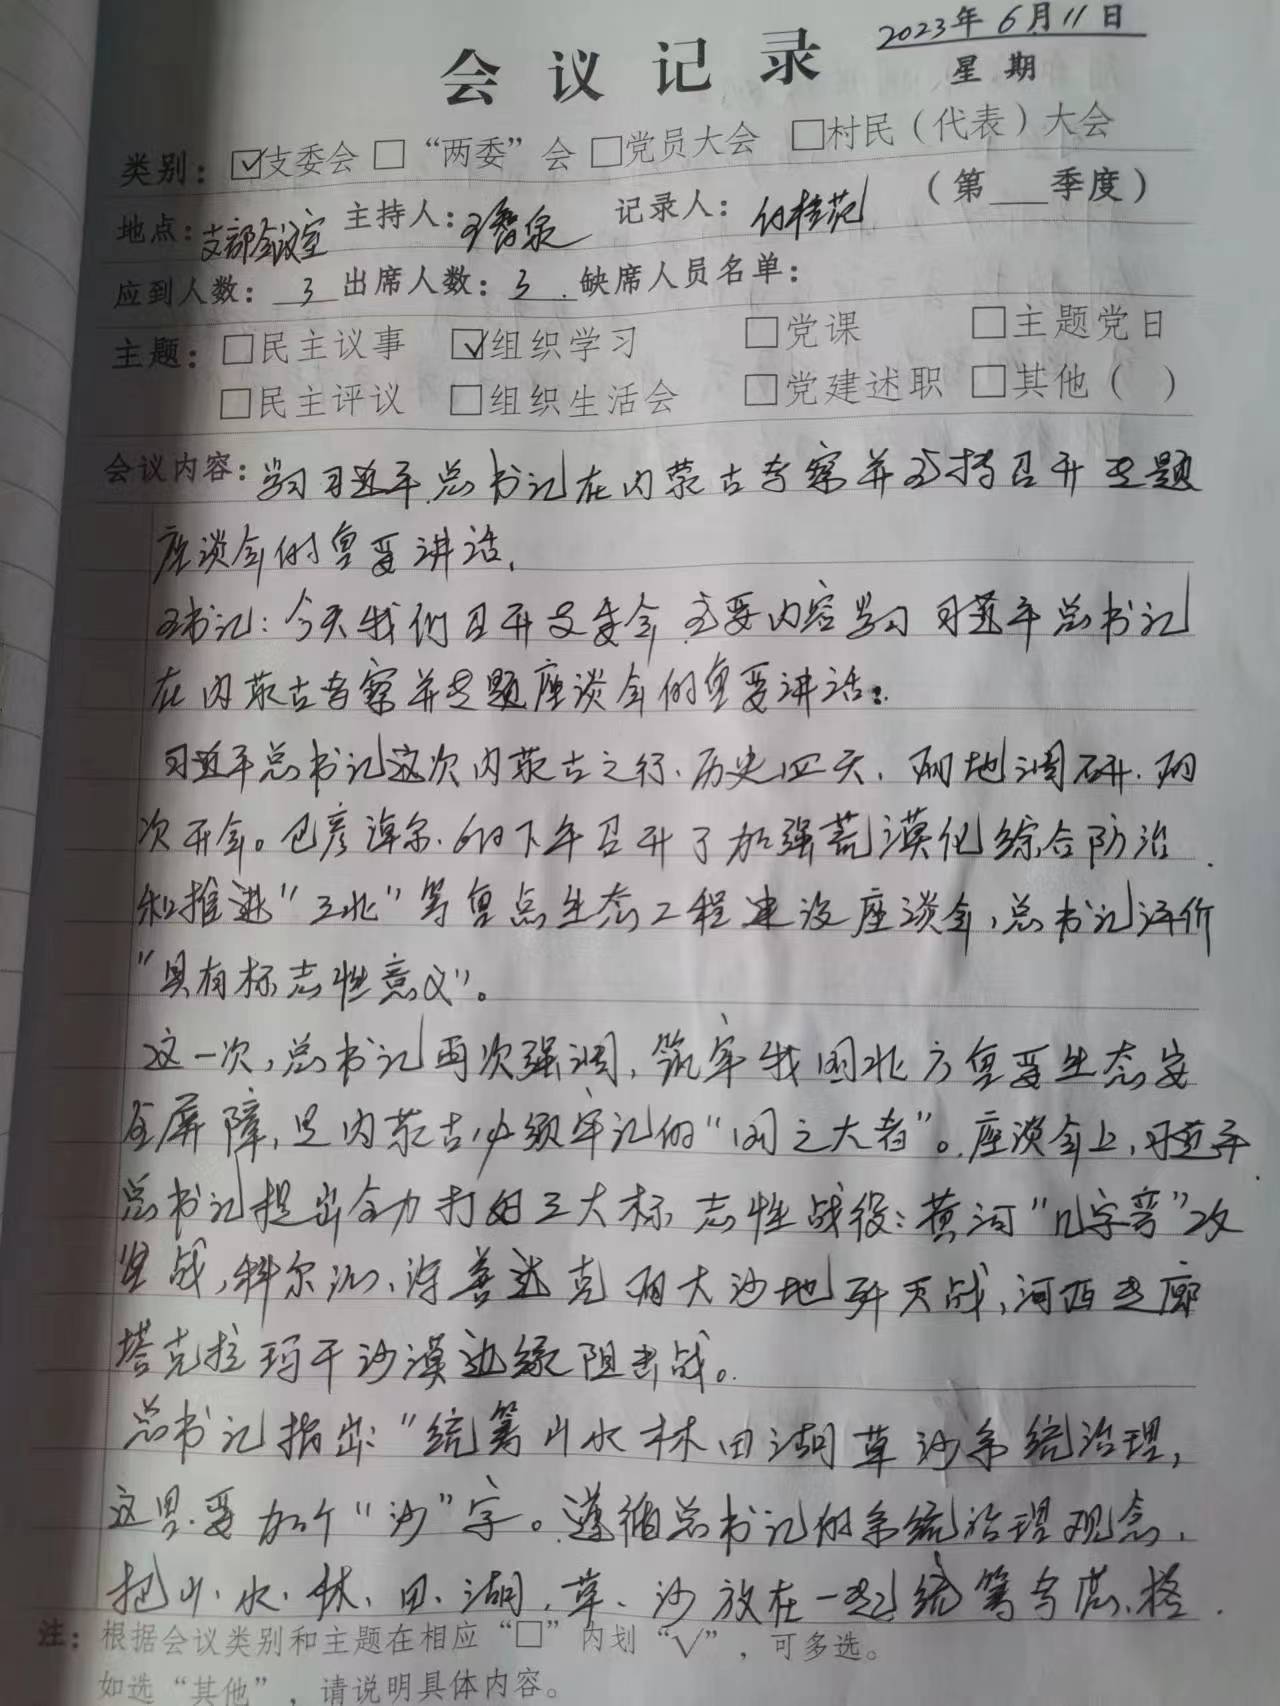 2023年6月11日
会议记录
星期
类别：☑支委会 □“两委”会 □党员大会 □村民（代表）大会
（第___季度）
地点：支部会议室 主持人：王 泉 记录人：付桂苑
应到人数：3 出席人数：3 缺席人员名单：
主题：□民主议事 ☑组织学习 □党课 □主题党日
□民主评议 □组织生活会 □党建述职 □其他（ ）
会议内容：学习习近平总书记在内蒙古考察并主持召开专题
座谈会的重要讲话，
王书记：今天我们召开支委会，主要内容学习习近平总书记
在内蒙古考察并专题座谈会的重要讲话：
习近平总书记这次内蒙古之行、历史四天，两地调研、两
次开会。巴彦淖尔、6日下午召开了加强荒漠化综合防治
和推进“三北”等重点生态工程建设座谈会，总书记评价
“具有标志性意义”。
这一次，总书记再次强调，筑牢我国北方重要生态安
全屏障，是内蒙古必须牢记的“国之大者”。座谈会上，习近平
总书记提出全力打好三大标志性战役：黄河“几字弯”攻
坚战，科尔沁、浑善达克两大沙地歼灭战，河西走廊
塔克拉玛干沙漠边缘阻击战。
总书记指出：“统筹山水林田湖草沙系统治理，
这里要加个“沙”字。遵循总书记的系统治理观念，
把山、水、林、田、湖、草、沙放在一起统筹考虑、格
注：根据会议类别和主题在相应“□”内划“√”，可多选。
如选“其他”，请说明具体内容。